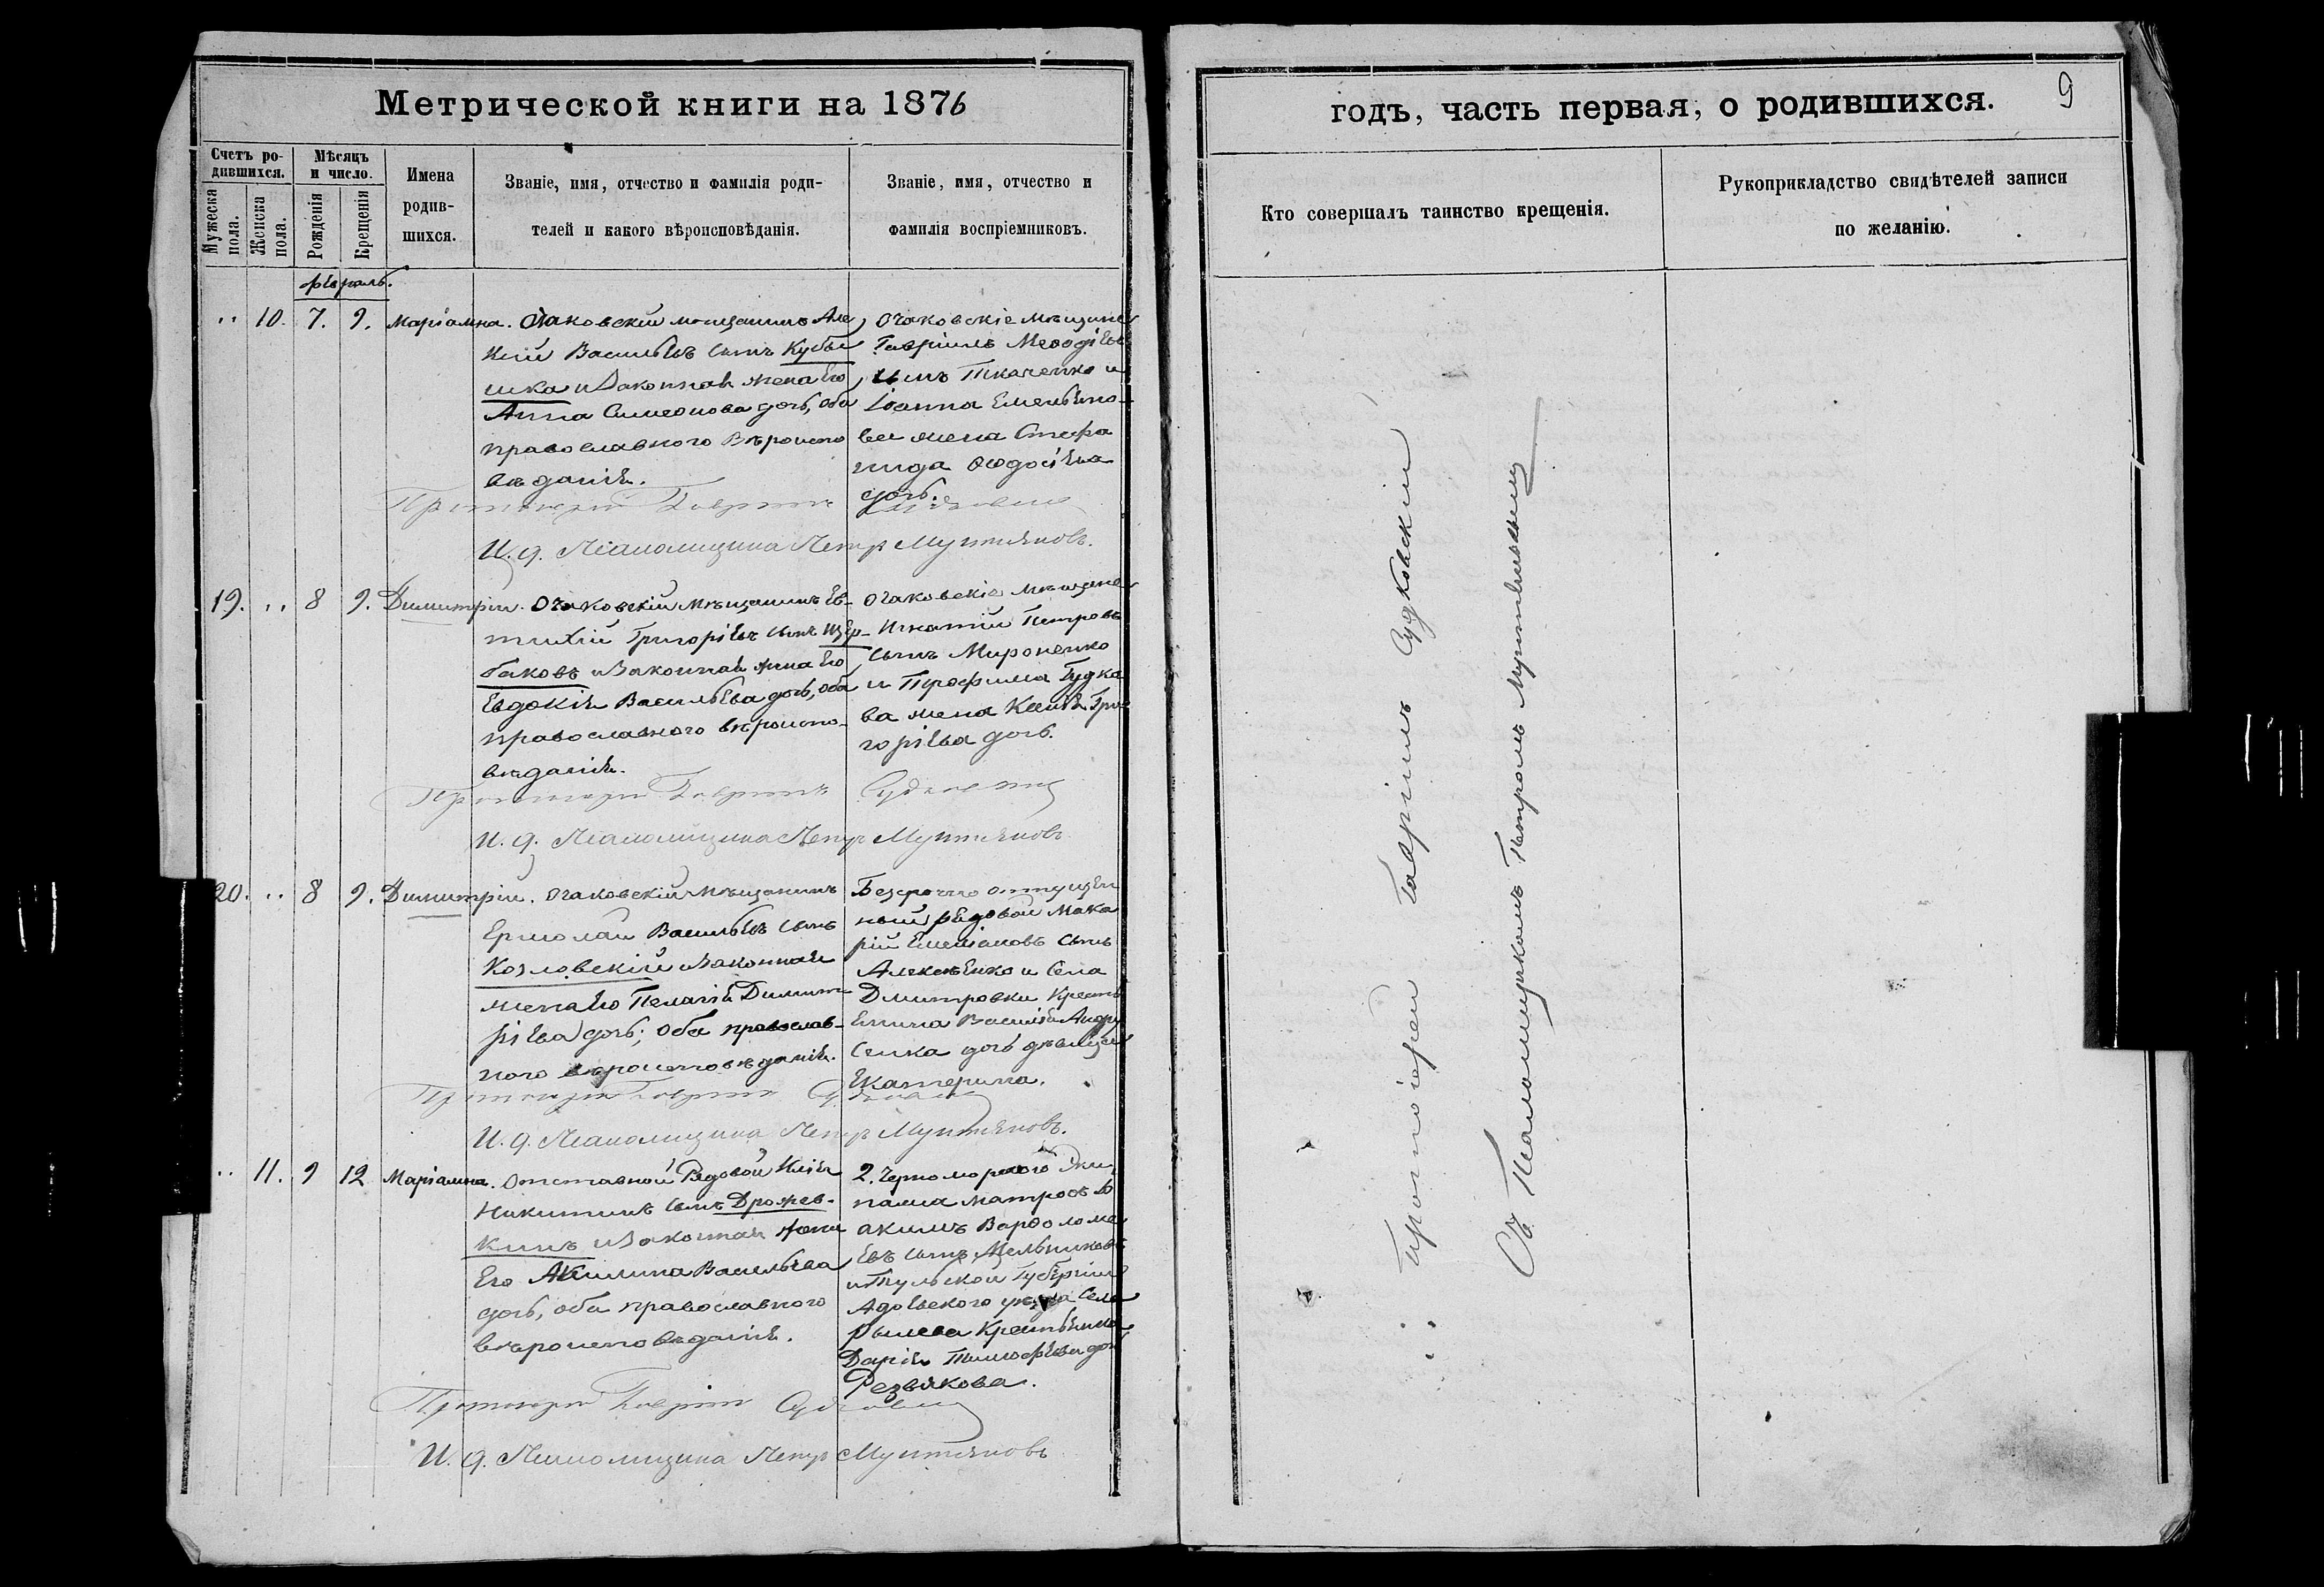 Метрической книги на 1876
Счетъ ро-
дившихся.
Мужеска
пола.
Женска
пола.
Мѣсяцъ
и число.
Рожденія
Крещенія
Имена
родив-
шихся.
Званіе, имя, отчество и фамилія роди-
телей и какого вѣроисповѣданія.
Званіе, имя, отчество и
фамилія воспріемниковъ.
февраль.
10. 7. 9. Маріамна. Очаковскій мѣщанинъ Але
ксій Васильевъ сынъ Кубы
шка и законная жена Его
Анна Симеонова дочь, оба
православного вѣроиспо
вѣданія.
Очаковскіе мѣщане
Гавріилъ Меѳодіевъ
сынъ Ткаченко и
Іоанна Емельяно-
ва жена Стефа
нида Ѳеодосіева
дочь.
Протоіерей Гавріилъ Судковскій
И. д. Псаломщика Петръ Мунтяновъ.
19. 8 9. Димитрій. Очаковскій мѣщанинъ Ев-
тихій Григоріевъ сынъ Щер-
баковъ и законная жена Его
Евдокія Васильева дочь, оба
православного вѣроиспо-
вѣданія.
Очаковскіе мѣщане
Игнатій Петровъ
сынъ Мироненко
и Трофима Гудко
ва жена Ксенія Гри
горіева дочь.
Протоіерей Гавріилъ Судковскій
И. д. Псаломщика Петръ Мунтяновъ
20. 8 9. Димитрій. Очаковскій мѣщанинъ
Ермолай Васильевъ сынъ
Козловскій и законная
жена Его Пелагія Димит
ріева дочь; оба православ-
ного вѣроисповѣданія.
Безсрочно отпущен
ный рядовой Мака
рій Емеліановъ сынъ
Алексѣенко и Села
Дмитровки Кресть
янина Василія Андру
сенка дочь дѣвица
Екатерина.
Протоіерей Гавріилъ Судковскій
И. д. Псаломщика Петръ Мунтяновъ.
11. 9 12 Маріамна. Отставной Рядовой Илія
Никитинъ сынъ Дрожев-
кинъ и законная жена
Его Акилина Васильева
дочь, оба православного
вѣроисповѣданія.
2. Черноморского Эки
пажа матросъ Іо
акимъ Варѳоломе
евъ сынъ Мельниковъ
и Тульской Губерніи
Адоевского уѣзда Села
Рылева Крестьянка
Дарія Тимофѣева дочь
Резвякова.
Протоіерей Гавріилъ Судковскій
И. д. Псаломщика Петръ Мунтяновъ
годъ, часть первая, о родившихся.
9
Кто совершалъ таинство крещенія.
Рукоприкладство свидѣтелей записи
по желанію.
Протоіерей Гавріилъ Судковскій
Съ Псаломщикомъ Петромъ Мунтяновымъ